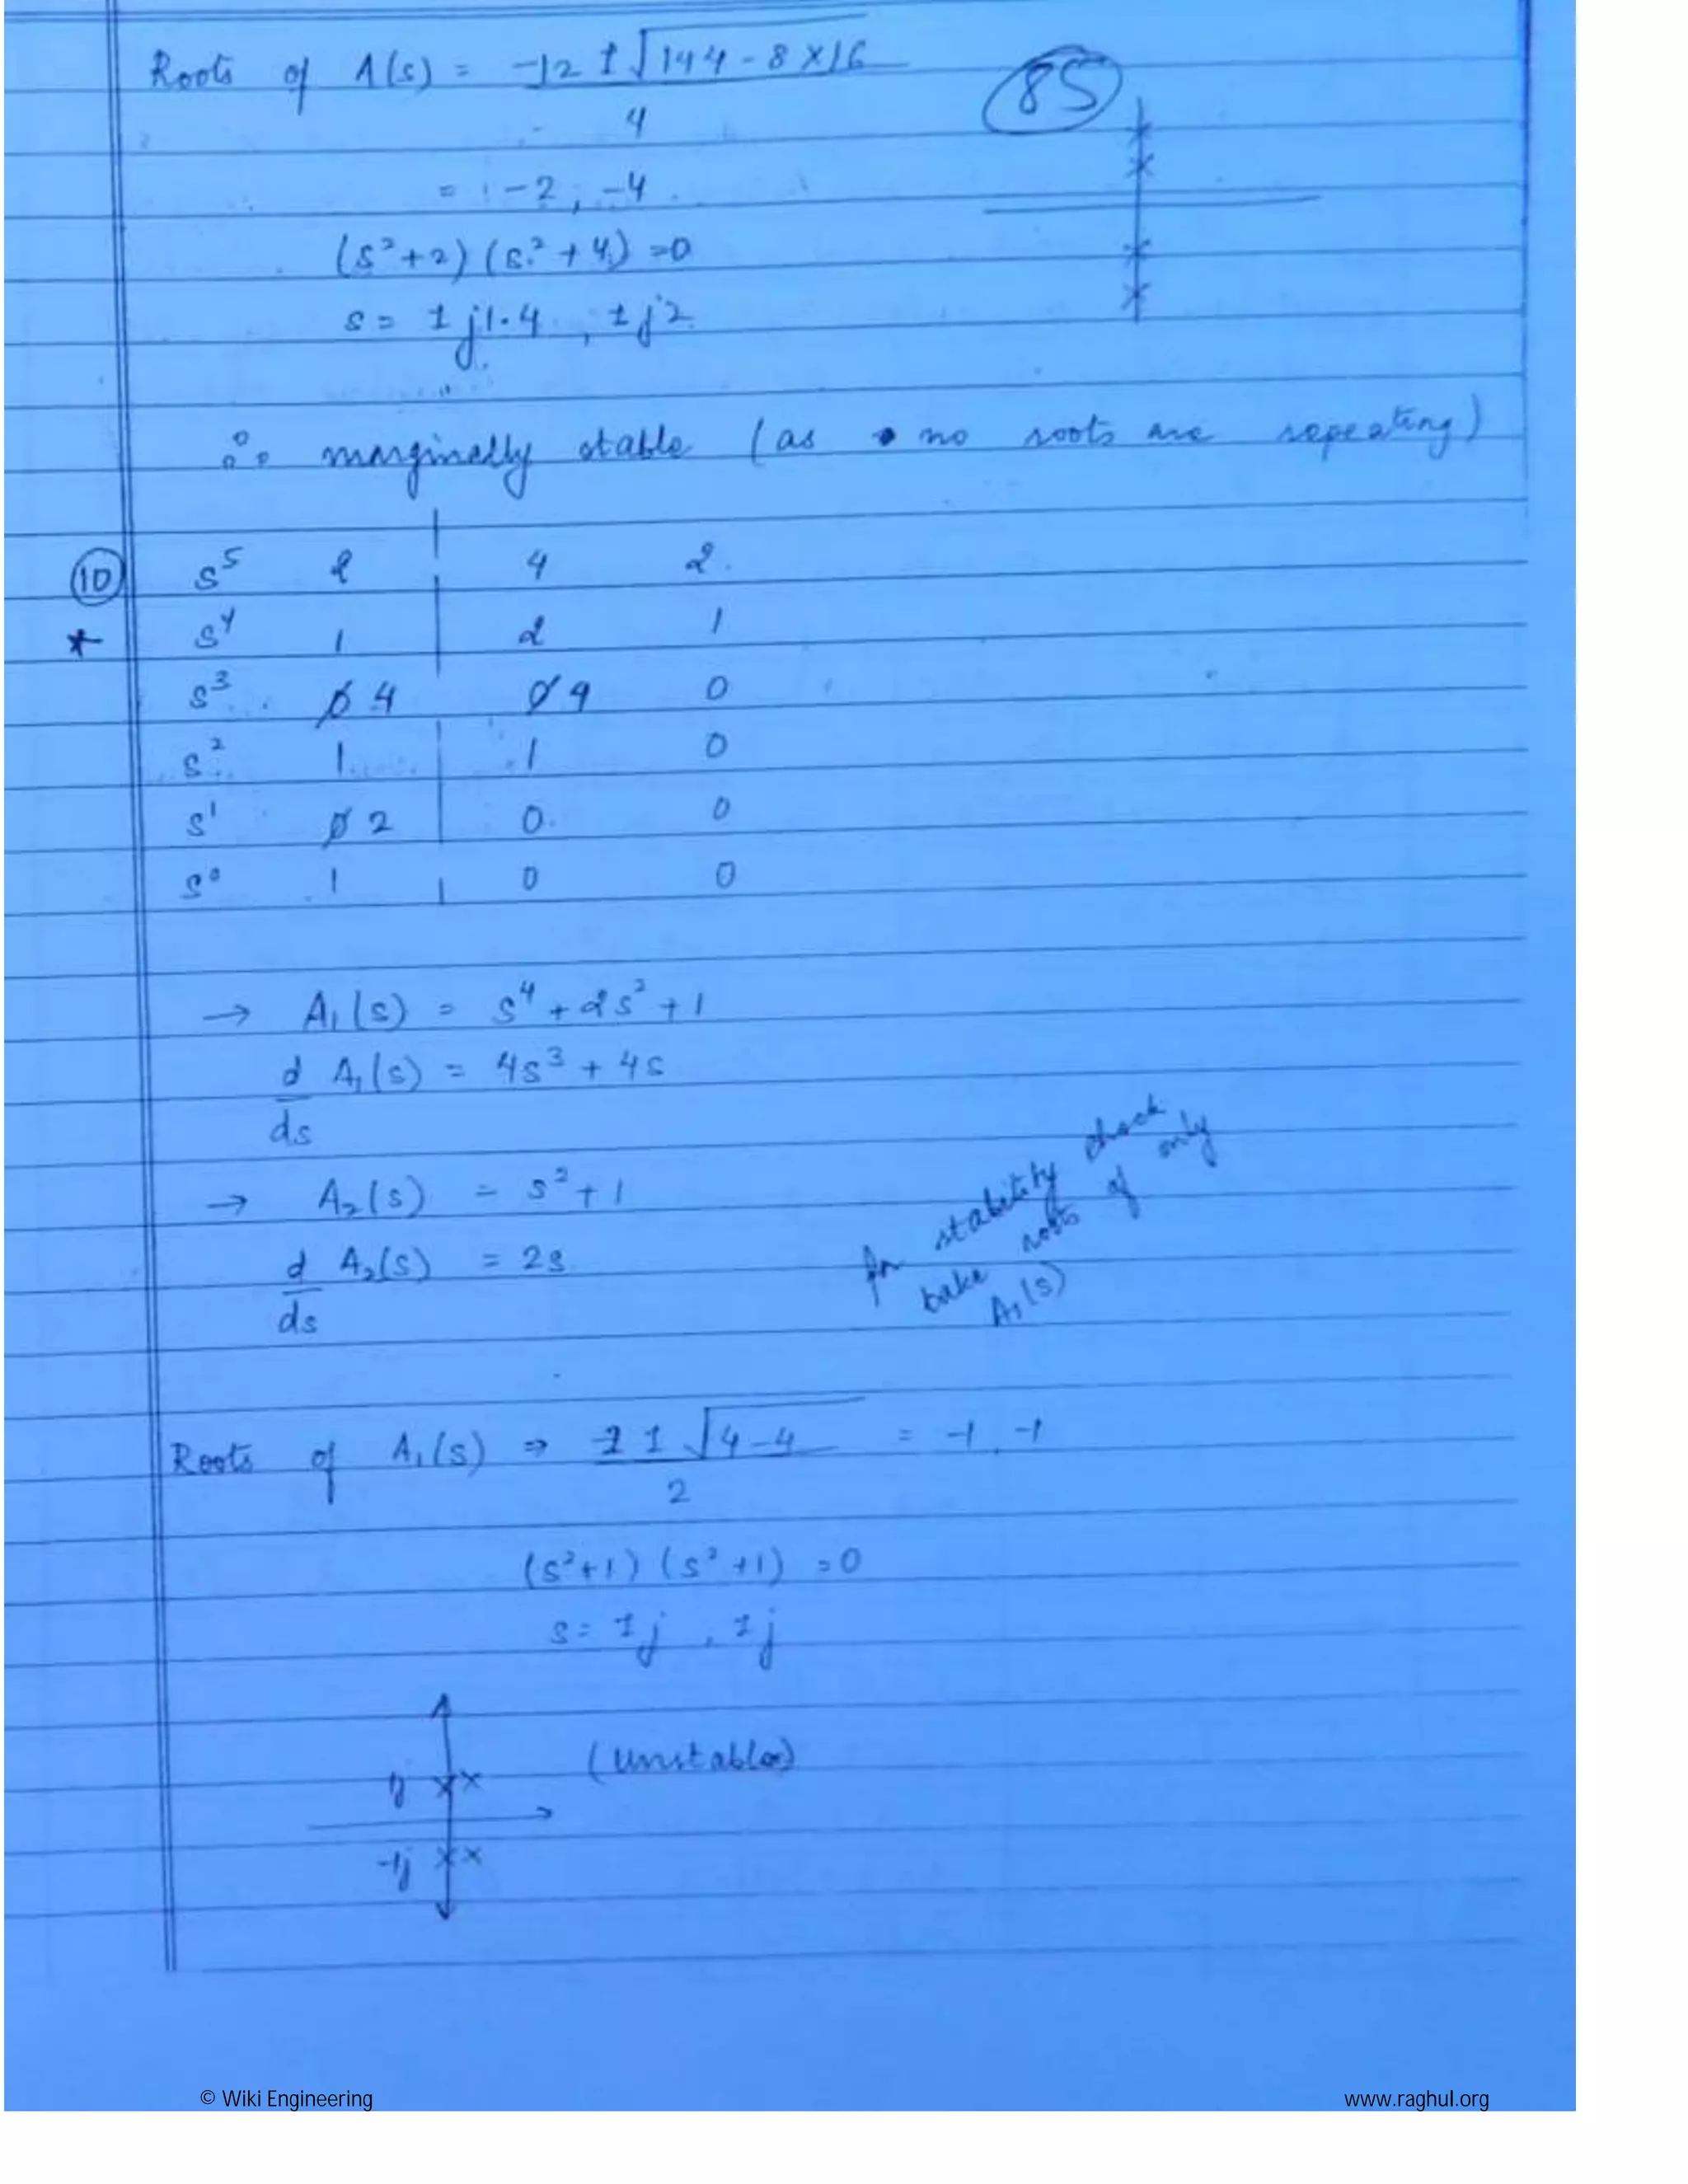 Roots of A(s) = -12 ± √144 - 8 × 16
4
85
= -2, -4
(s²+2) (s²+4) =0
s = ± j1.4 , ± j2
∴ marginally stable (as no roots are repeating)
10 s⁵ 2 4 2
* s⁴ 1 2 1
s³ 0 4 0 4 0
s² 1 1 0
s¹ 0 2 0 0
s⁰ 1 0 0
→ A₁(s) = s⁴ + 2s² + 1
d A₁(s) = 4s³ + 4s
ds
→ A₂(s) = s² + 1
d A₂(s) = 2s
ds
for stability check
take roots of only
A₁(s)
Roots of A₁(s) ⇒ -2 ± √4-4 = -1, -1
2
(s²+1) (s²+1) =0
s = ± j , ± j
(Unstable)
1j
-1j
© Wiki Engineering
www.raghul.org